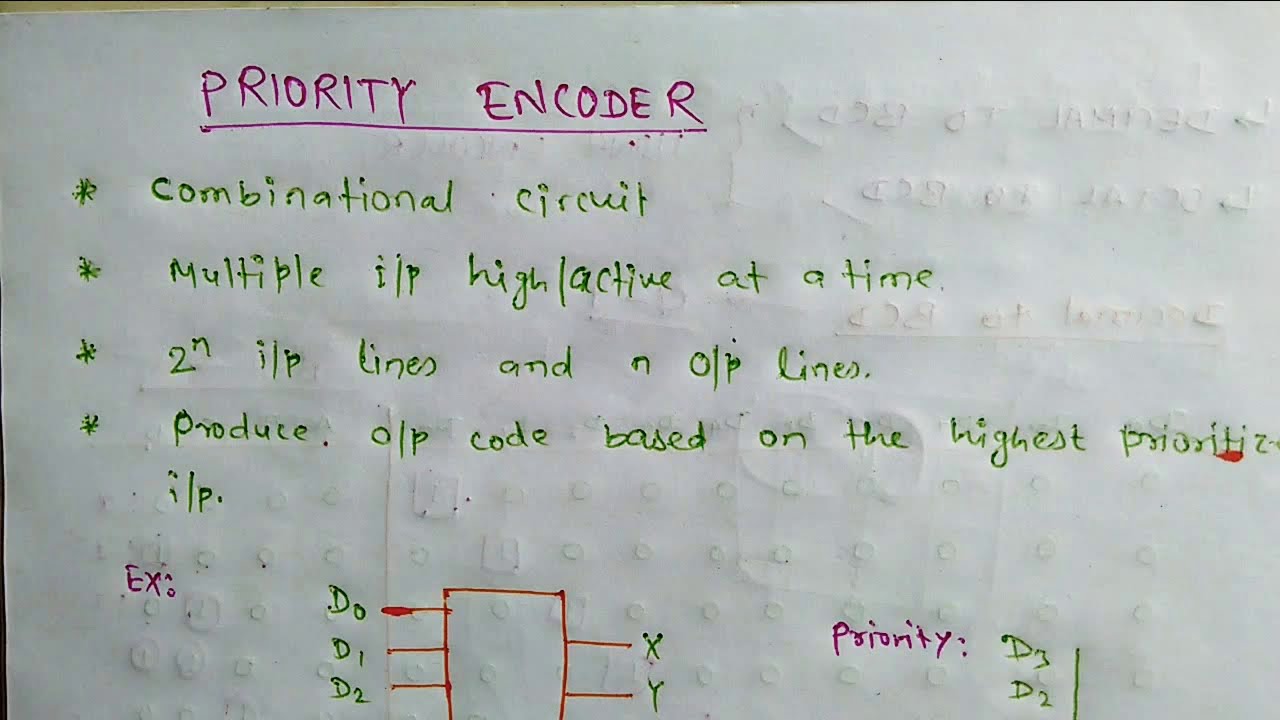 PRIORITY ENCODER
* Combinational circuit
* Multiple i/p high/active at a time.
* 2ⁿ i/p lines and n o/p lines.
* Produce. o/p code based on the highest prioritiz
i/p.
EX:
D0
D1
D2
X
Y
Priority: D3
D2